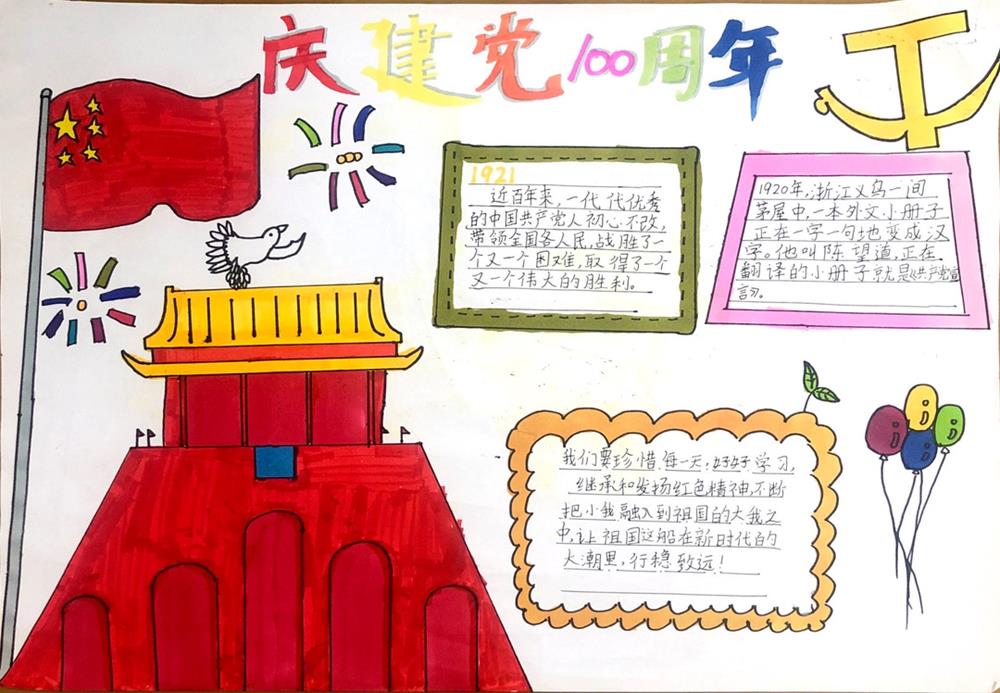 庆建党100周年
1921
近百年来，一代代优秀
的中国共产党人初心不改，
带领全国各人民，战胜了一
个又一个困难，取得了一个
又一个伟大的胜利。
1920年，浙江义乌一间
茅屋中，一本外文小册子
正在一字一句地变成汉
字。他叫陈望道，正在
翻译的小册子就是《共产党宣
言》。
我们要珍惜每一天，好好学习，
继承和发扬红色精神，不断
把小我融入到祖国的大我之
中，让祖国这船在新时代的
大潮里，行稳致远！